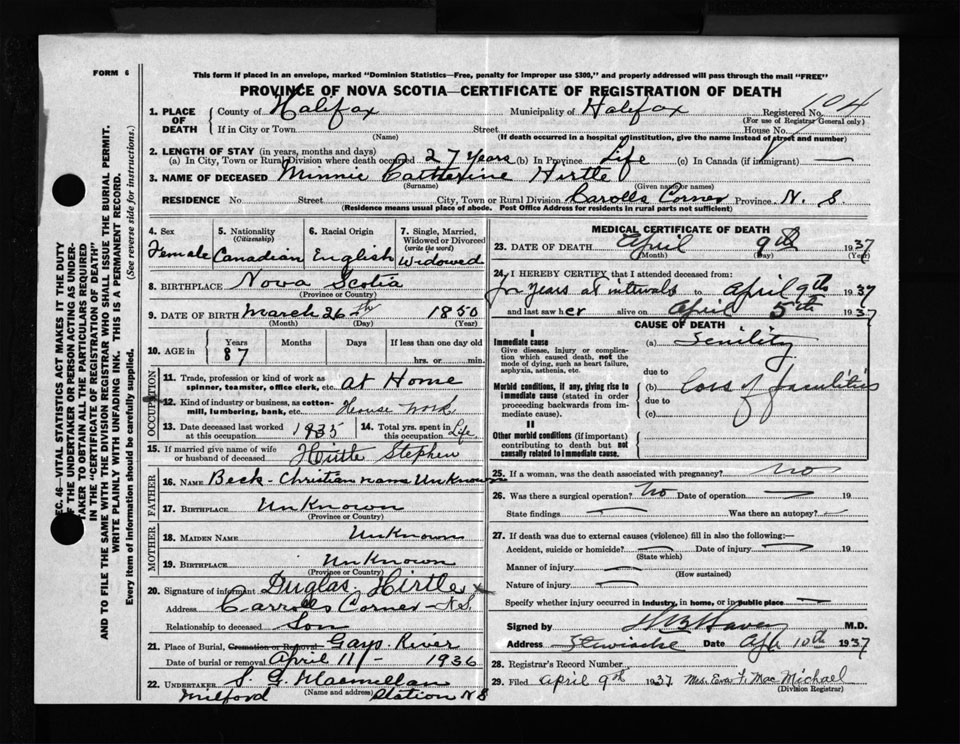 FORM 6
This form if placed in an envelope, marked "Dominion Statistics—Free, penalty for improper use $300," and properly addressed will pass through the mail "FREE"
PROVINCE OF NOVA SCOTIA—CERTIFICATE OF REGISTRATION OF DEATH
1. PLACE OF DEATH County of Halifax Municipality of Halifax Registered No. 104
(For use of Registrar General only)
If in City or Town Street House No.
(Name) (If death occurred in a hospital or institution, give the name instead of street and number)
2. LENGTH OF STAY (in years, months and days)
(a) In City, Town or Rural Division where death occurred 27 Years (b) In Province Life (c) In Canada (if immigrant) —
3. NAME OF DECEASED Minnie Catherine Hirtle
(Surname) (Given name or names)
RESIDENCE No. Street City, Town or Rural Division Carolls Corner Province N. S.
(Residence means usual place of abode. Post Office Address for residents in rural parts not sufficient)
4. Sex Female
5. Nationality (Citizenship) Canadian
6. Racial Origin English
7. Single, Married, Widowed or Divorced (write the word) Widowed
8. BIRTHPLACE Nova Scotia
(Province or Country)
9. DATE OF BIRTH March 26th 1850
(Month) (Day) (Year)
10. AGE in Years Months Days If less than one day old
87 hrs. or min.
OCCUPATION
11. Trade, profession or kind of work as spinner, teamster, office clerk, etc. at Home
12. Kind of industry or business, as cotton-mill, lumbering, bank, etc. House work
13. Date deceased last worked at this occupation 1935
14. Total yrs. spent in this occupation Life
15. If married give name of wife or husband of deceased Hirtle Stephen
FATHER
16. NAME Beck - Christian name Unknown
17. BIRTHPLACE Unknown
(Province or Country)
MOTHER
18. MAIDEN NAME Unknown
19. BIRTHPLACE Unknown
(Province or Country)
20. Signature of informant Duglas Hirtle x
Address Carrolls Corner - N.S.
Relationship to deceased Son
21. Place of Burial, Cremation or Removal Gays River
Date of burial or removal April 11 - 1936
22. UNDERTAKER S. G. Macmillan
(Name and address)
Milford Station N S
MEDICAL CERTIFICATE OF DEATH
23. DATE OF DEATH April 9th 1937
(Month) (Day) (Year)
24. I HEREBY CERTIFY that I attended deceased from:
for years at intervals to April 9th 1937
and last saw her alive on April 5th 1937
CAUSE OF DEATH
I
Immediate cause
Give disease, injury or complication which caused death, not the mode of dying, such as heart failure, asphyxia, asthenia, etc.
(a) Senility
due to
Morbid conditions, if any, giving rise to immediate cause (stated in order proceeding backwards from immediate cause).
(b) loss of faculities
due to
(c)
II
Other morbid conditions (if important) contributing to death but not causally related to immediate cause.
25. If a woman, was the death associated with pregnancy? no
26. Was there a surgical operation? No Date of operation — 19
State findings — Was there an autopsy? —
27. If death was due to external causes (violence) fill in also the following:—
Accident, suicide or homicide? — Date of injury — 19
(State which)
Manner of injury —
(How sustained)
Nature of injury —
Specify whether injury occurred in industry, in home, or in public place —
Signed by M.D.
Address Stewiacke Date Apr 10th 1937
28. Registrar's Record Number
29. Filed April 9th 1937 Mrs. Eva F. MacMichael
(Division Registrar)
SEC. 46—VITAL STATISTICS ACT MAKES IT THE DUTY
OF THE UNDERTAKER OR PERSON ACTING AS UNDERTAKER TO OBTAIN ALL THE PARTICULARS REQUIRED
IN THE "CERTIFICATE OF REGISTRATION OF DEATH"
AND TO FILE THE SAME WITH THE DIVISION REGISTRAR WHO SHALL ISSUE THE BURIAL PERMIT.
WRITE PLAINLY WITH UNFADING INK. THIS IS A PERMANENT RECORD.
Every item of information should be carefully supplied. (See reverse side for instructions.)